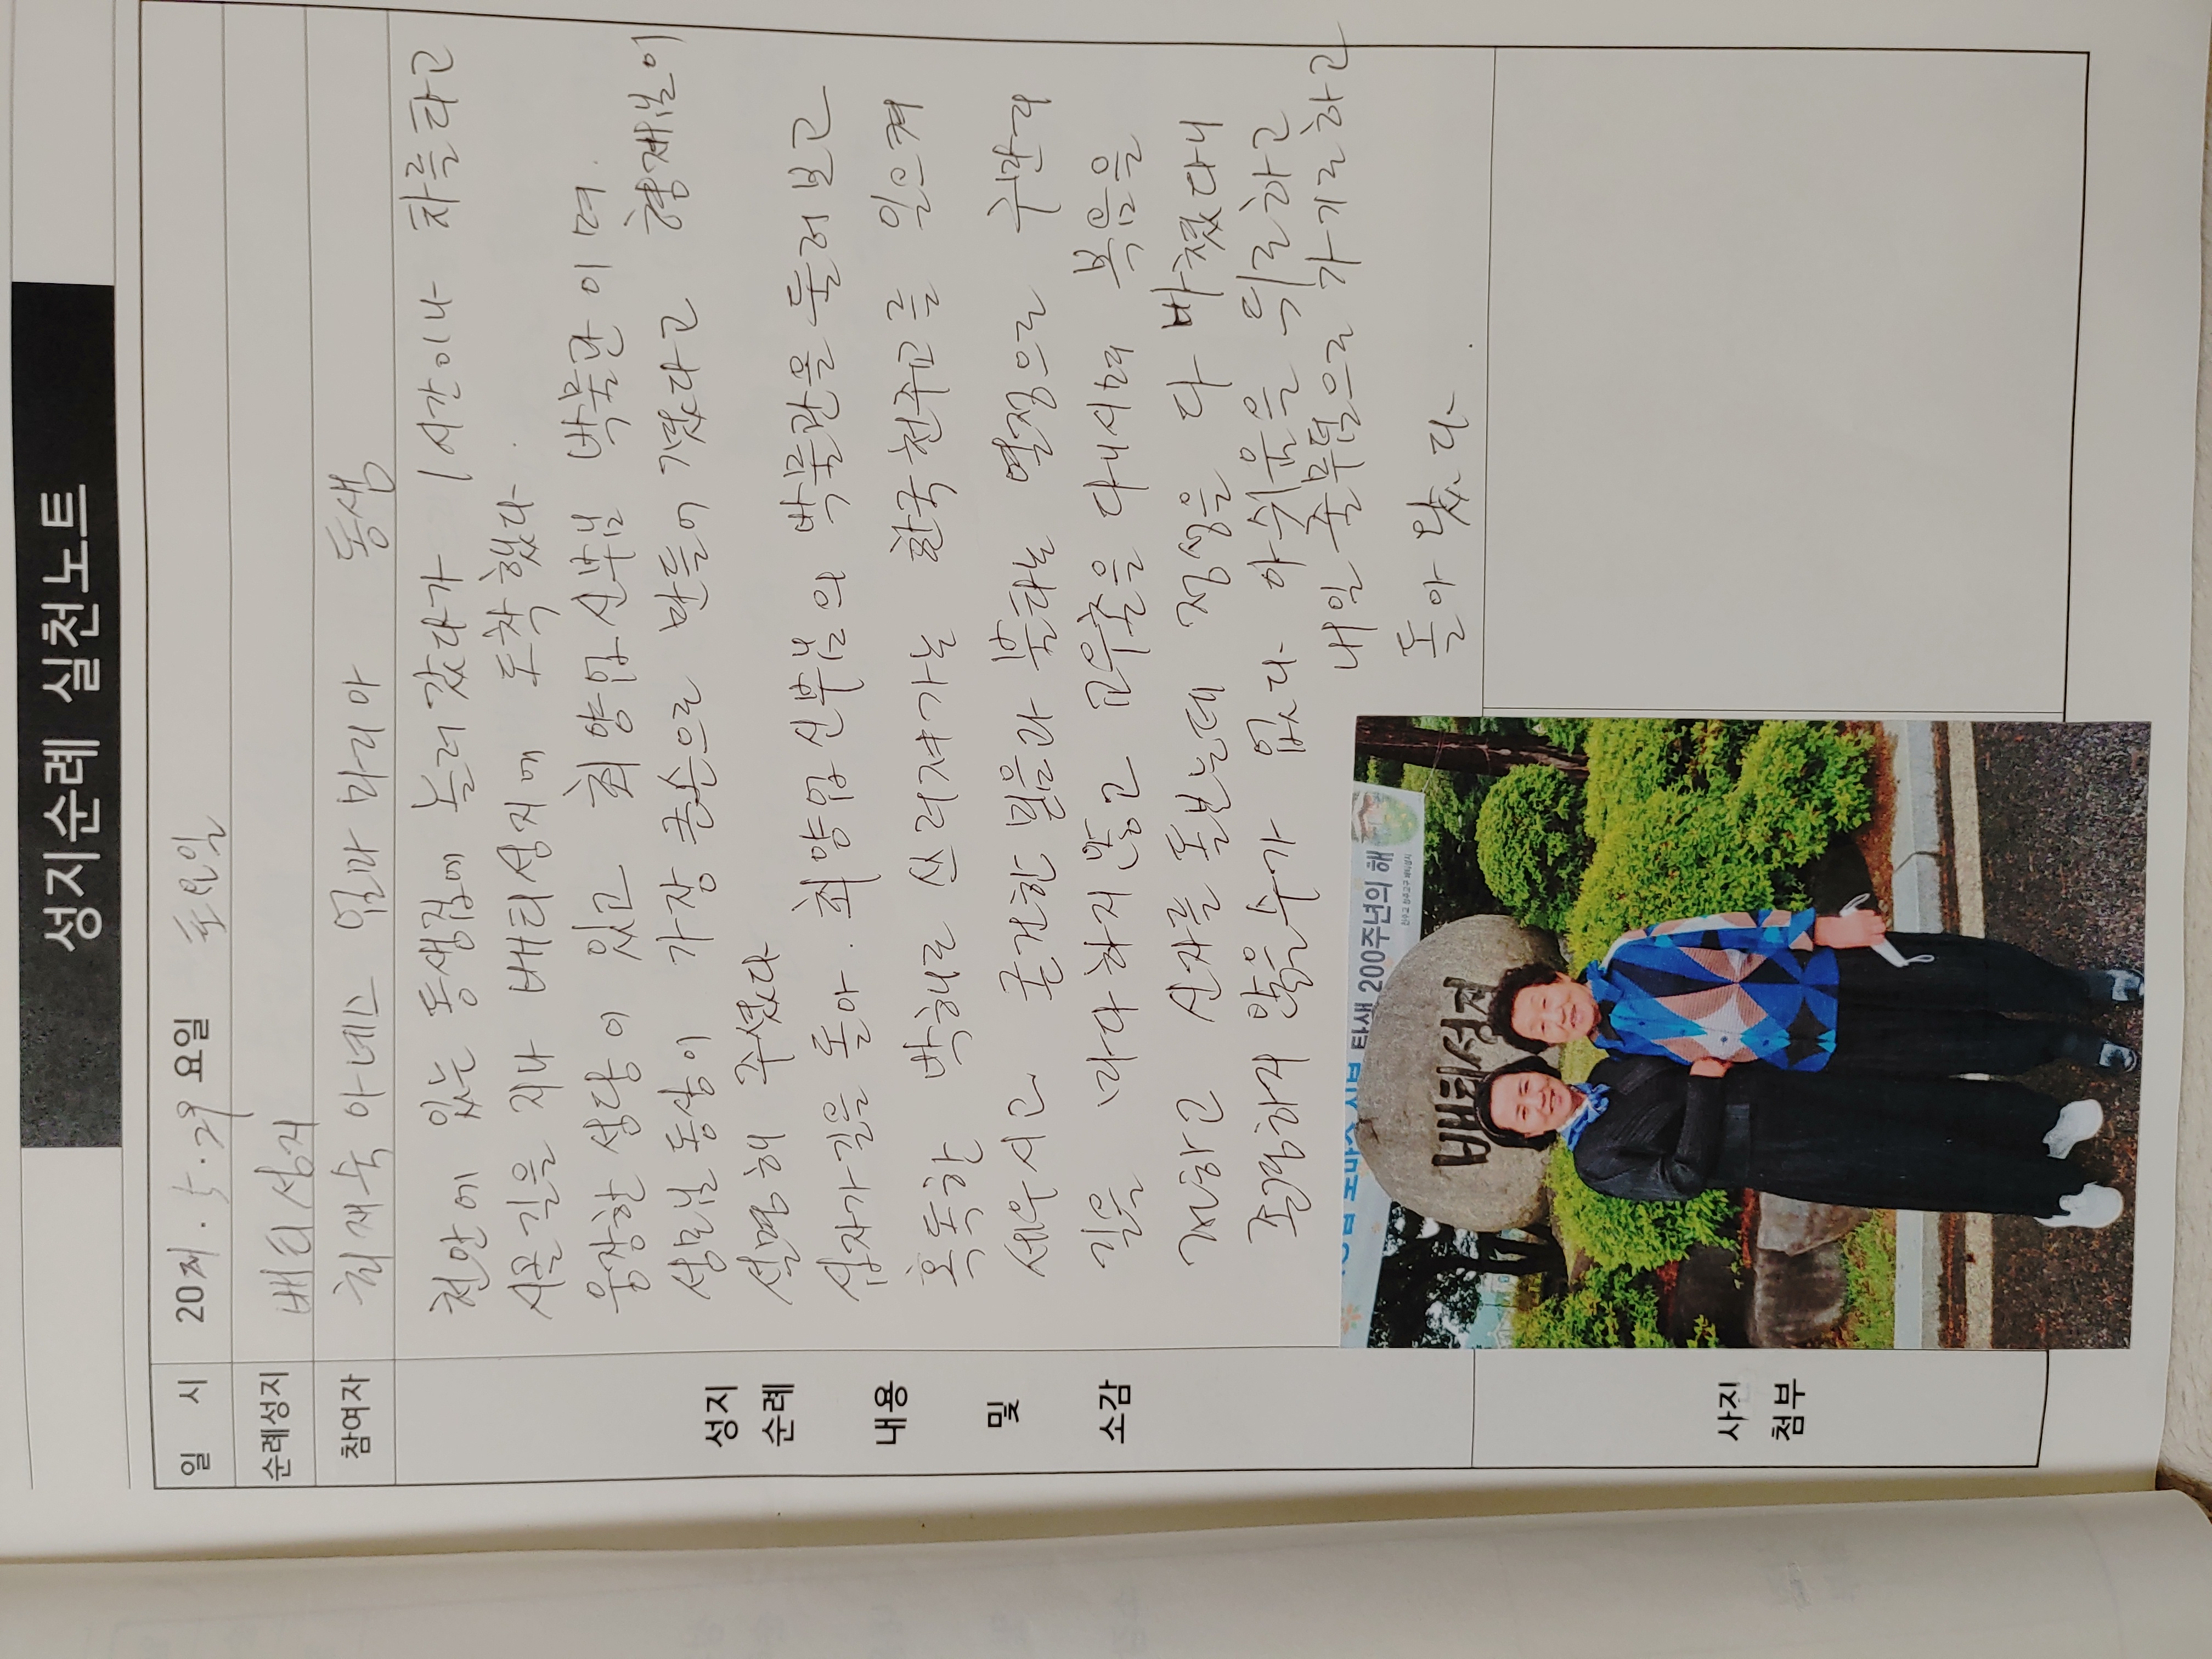 성지순례 실천노트
일 시 2021. 5. 29 요일 토요일
순례성지 배티성지
참여자 최재숙 아녜스 엄마 마리아 동생
천안에 있는 동생집에 놀러 갔다가 1시간이나 차를타고
시골길을 지나 배티성지에 도착했다.
웅장한 성당이 있고 최양업신부님 박물관이며.
성모님동상이 가장 큰손으로 만들어 졌다고 형제님이
설명해 주셨다
십자가길을 돌아. 최양업신부님의 박물관을 둘러보고
혹독한 박해로 쓰러져가는 한국천주교를 일으켜
세우시고 굳건한 믿음과 불타는 열정으로 구만리
길을 마다하지않고 교우촌을 다니시며 복음을
전하고 신자를 돌보는데 정성을 다 바쳤다니
존경하지 않을수가 없다 아쉬움을 뒤로하고
내일 줄무덤으로 가기로하고
돌아 왔다.
성지
순례
내용
및
소감
사진
첨부
토마스 신부 탄생 200주년의 해
천주교 청주교구 배티성지
배티성지